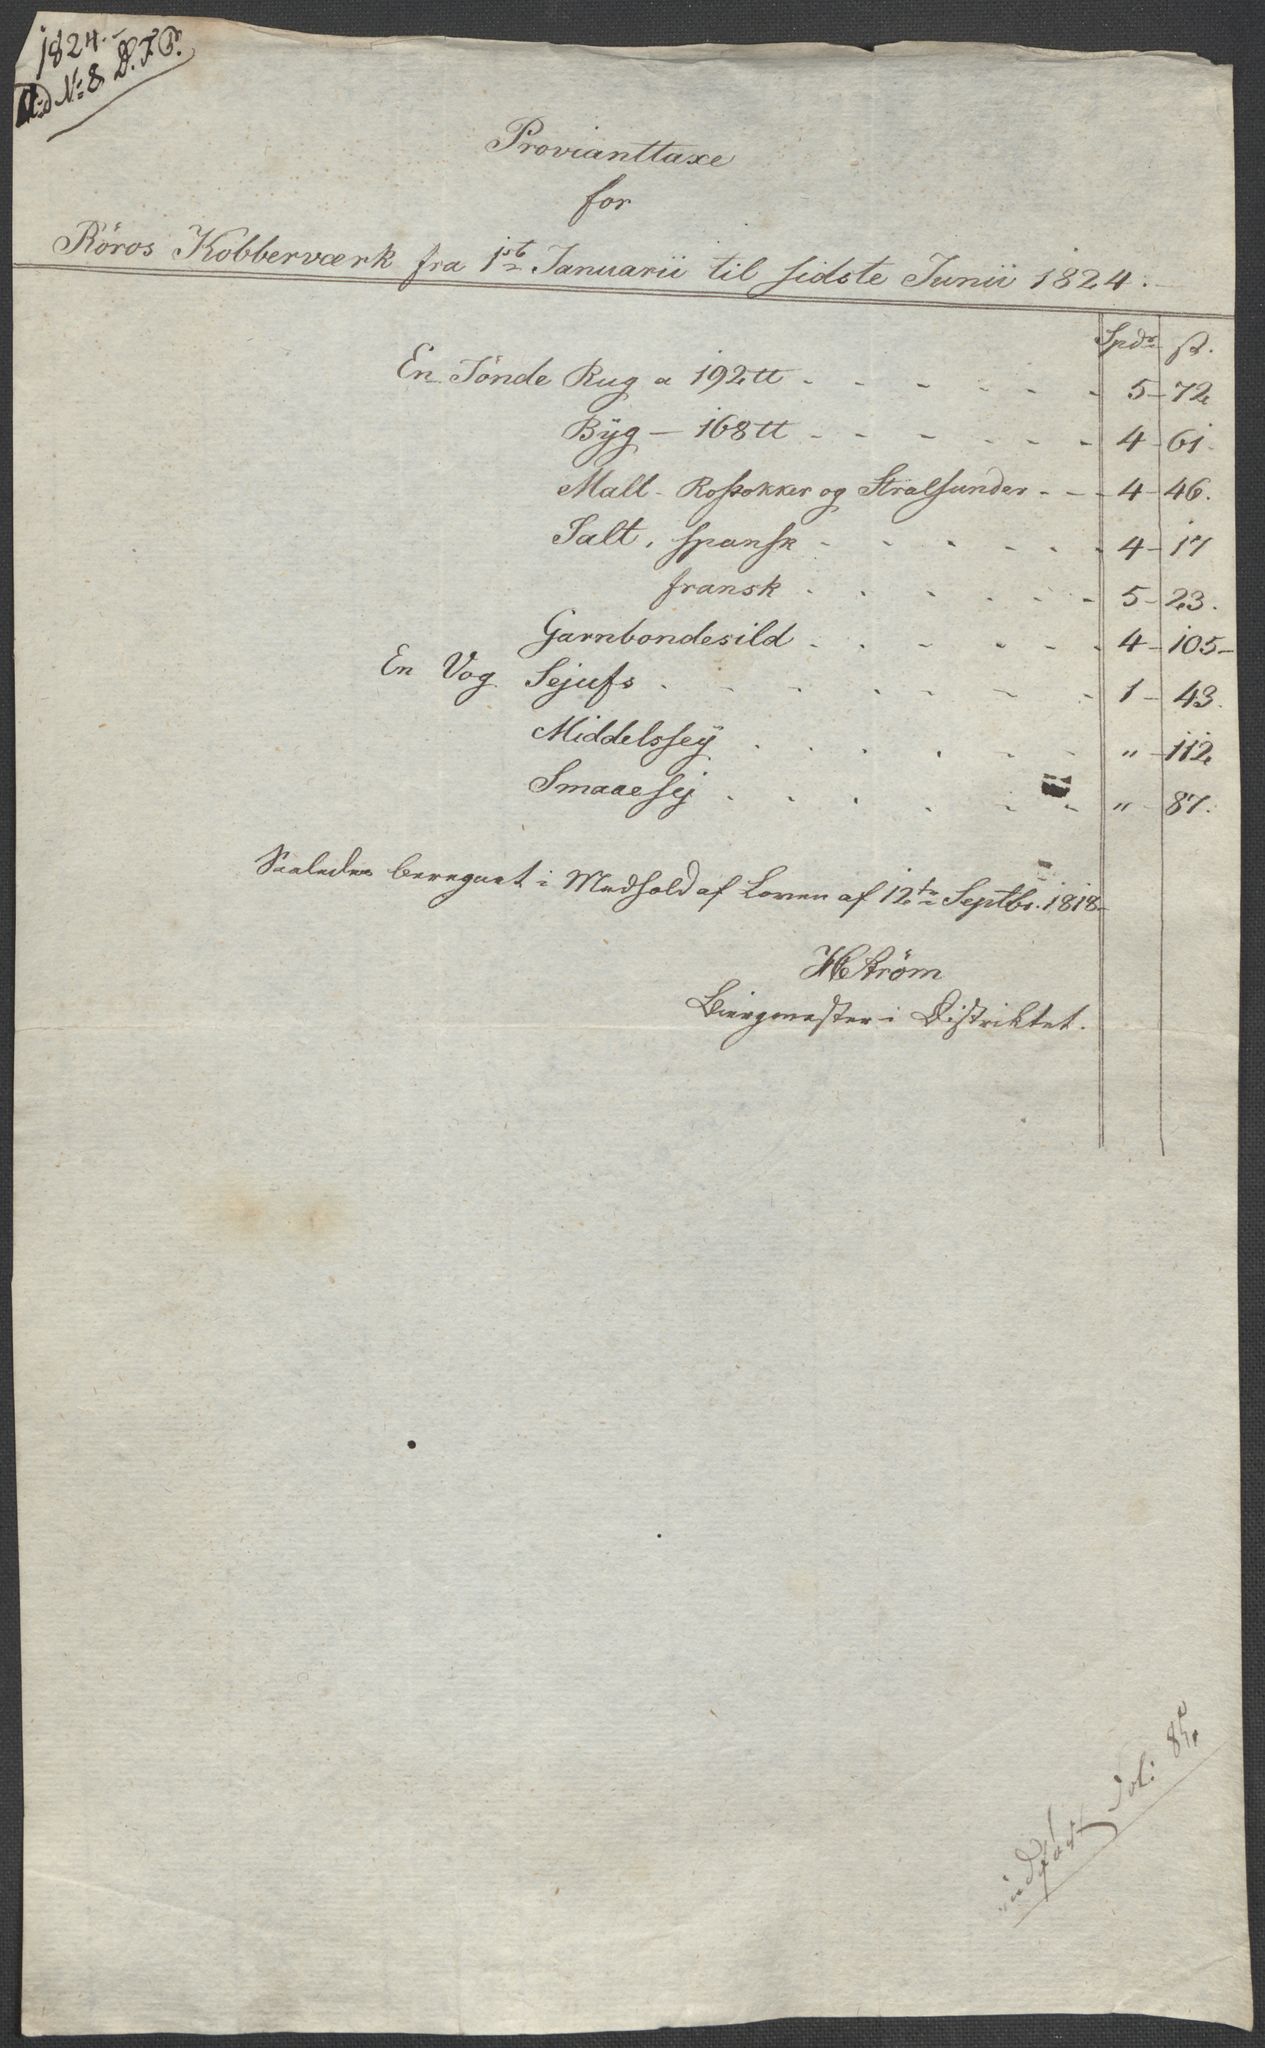 1824.-
No: 8. D. F. P.
Provianttaxe
for
Röros Kobberværk fra 1ste Januarii til sidste Junii 1824.
Spdr ß.
En Tönde Rug a 192 tt - - - - - 5 - 72
Byg - 168 tt - - - - - - 4 - 61.
Malt - Rostokker og Stralsunder - - - 4 - 46.
Salt, spansk - - - - - - 4 - 17
fransk - - - - - - 5 - 23.
Garnbondesild - - - - - - 4 - 105 -
En Vog Sejufs - - - - - - - 1 - 43.
Middelssey - - - - - - " - 112
Smaaesej - - - - - - " - 87.
Saaledes beregnet i Medhold af Loven af 12te Septbr. 1818 -
HStröm
Biergmester i Distriktet.
indført Fol: 85